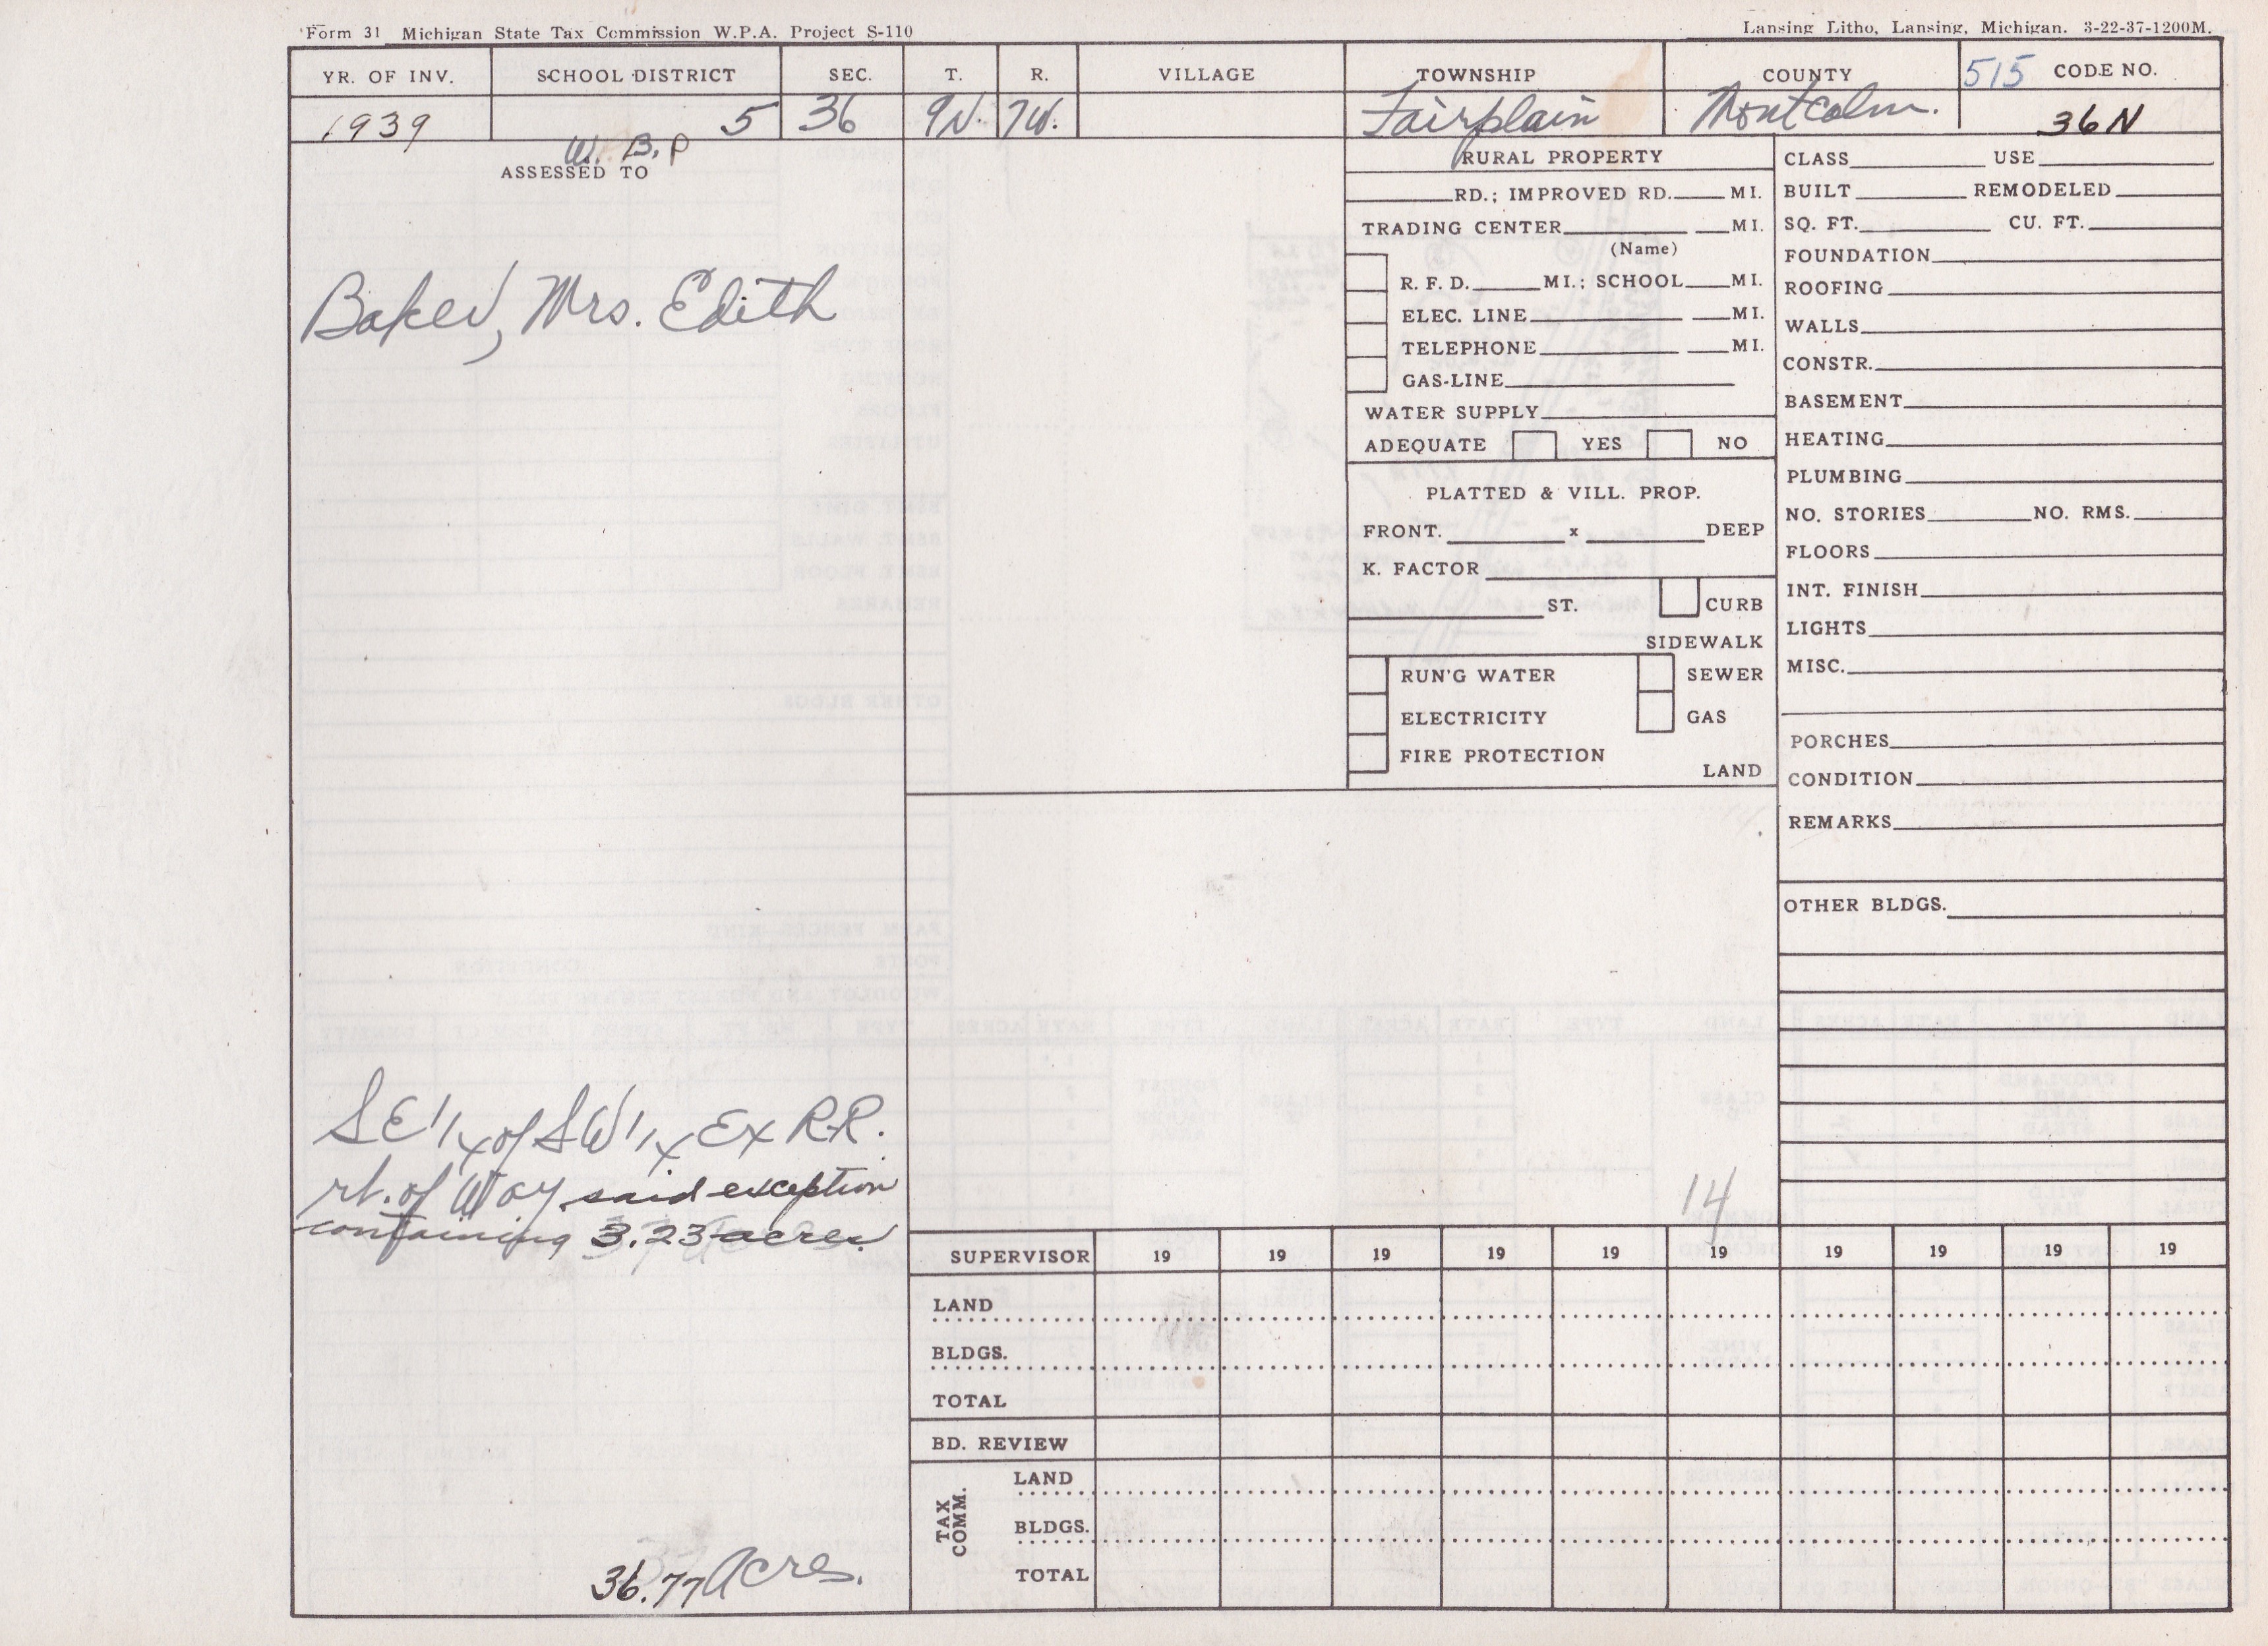 Form 31 Michigan State Tax Commission W.P.A. Project S-110
Lansing Litho, Lansing, Michigan. 3-22-37-1200M.
YR. OF INV. SCHOOL DISTRICT SEC. T. R. VILLAGE TOWNSHIP COUNTY 515 CODE NO.
1939 5 36 9N. 7W. Fairplain Montcalm. 36N
W. B. P
ASSESSED TO
Baker, Mrs. Edith
SE 1/4 of SW 1/4 Ex R.R.
rt. of Way said exception
containing 3.23 acres.
36.77 Acres.
RURAL PROPERTY
RD.; IMPROVED RD. MI.
TRADING CENTER MI.
(Name)
R. F. D. MI.; SCHOOL MI.
ELEC. LINE MI.
TELEPHONE MI.
GAS-LINE
WATER SUPPLY
ADEQUATE YES NO
PLATTED & VILL. PROP.
FRONT. x DEEP
K. FACTOR
ST. CURB
SIDEWALK
RUN'G WATER SEWER
ELECTRICITY GAS
FIRE PROTECTION
LAND
14
CLASS USE
BUILT REMODELED
SQ. FT. CU. FT.
FOUNDATION
ROOFING
WALLS
CONSTR.
BASEMENT
HEATING
PLUMBING
NO. STORIES NO. RMS.
FLOORS
INT. FINISH
LIGHTS
MISC.
PORCHES
CONDITION
REMARKS
OTHER BLDGS.
SUPERVISOR 19 19 19 19 19 19 19 19 19 19
LAND
BLDGS.
TOTAL
BD. REVIEW
TAX COMM.
LAND
BLDGS.
TOTAL